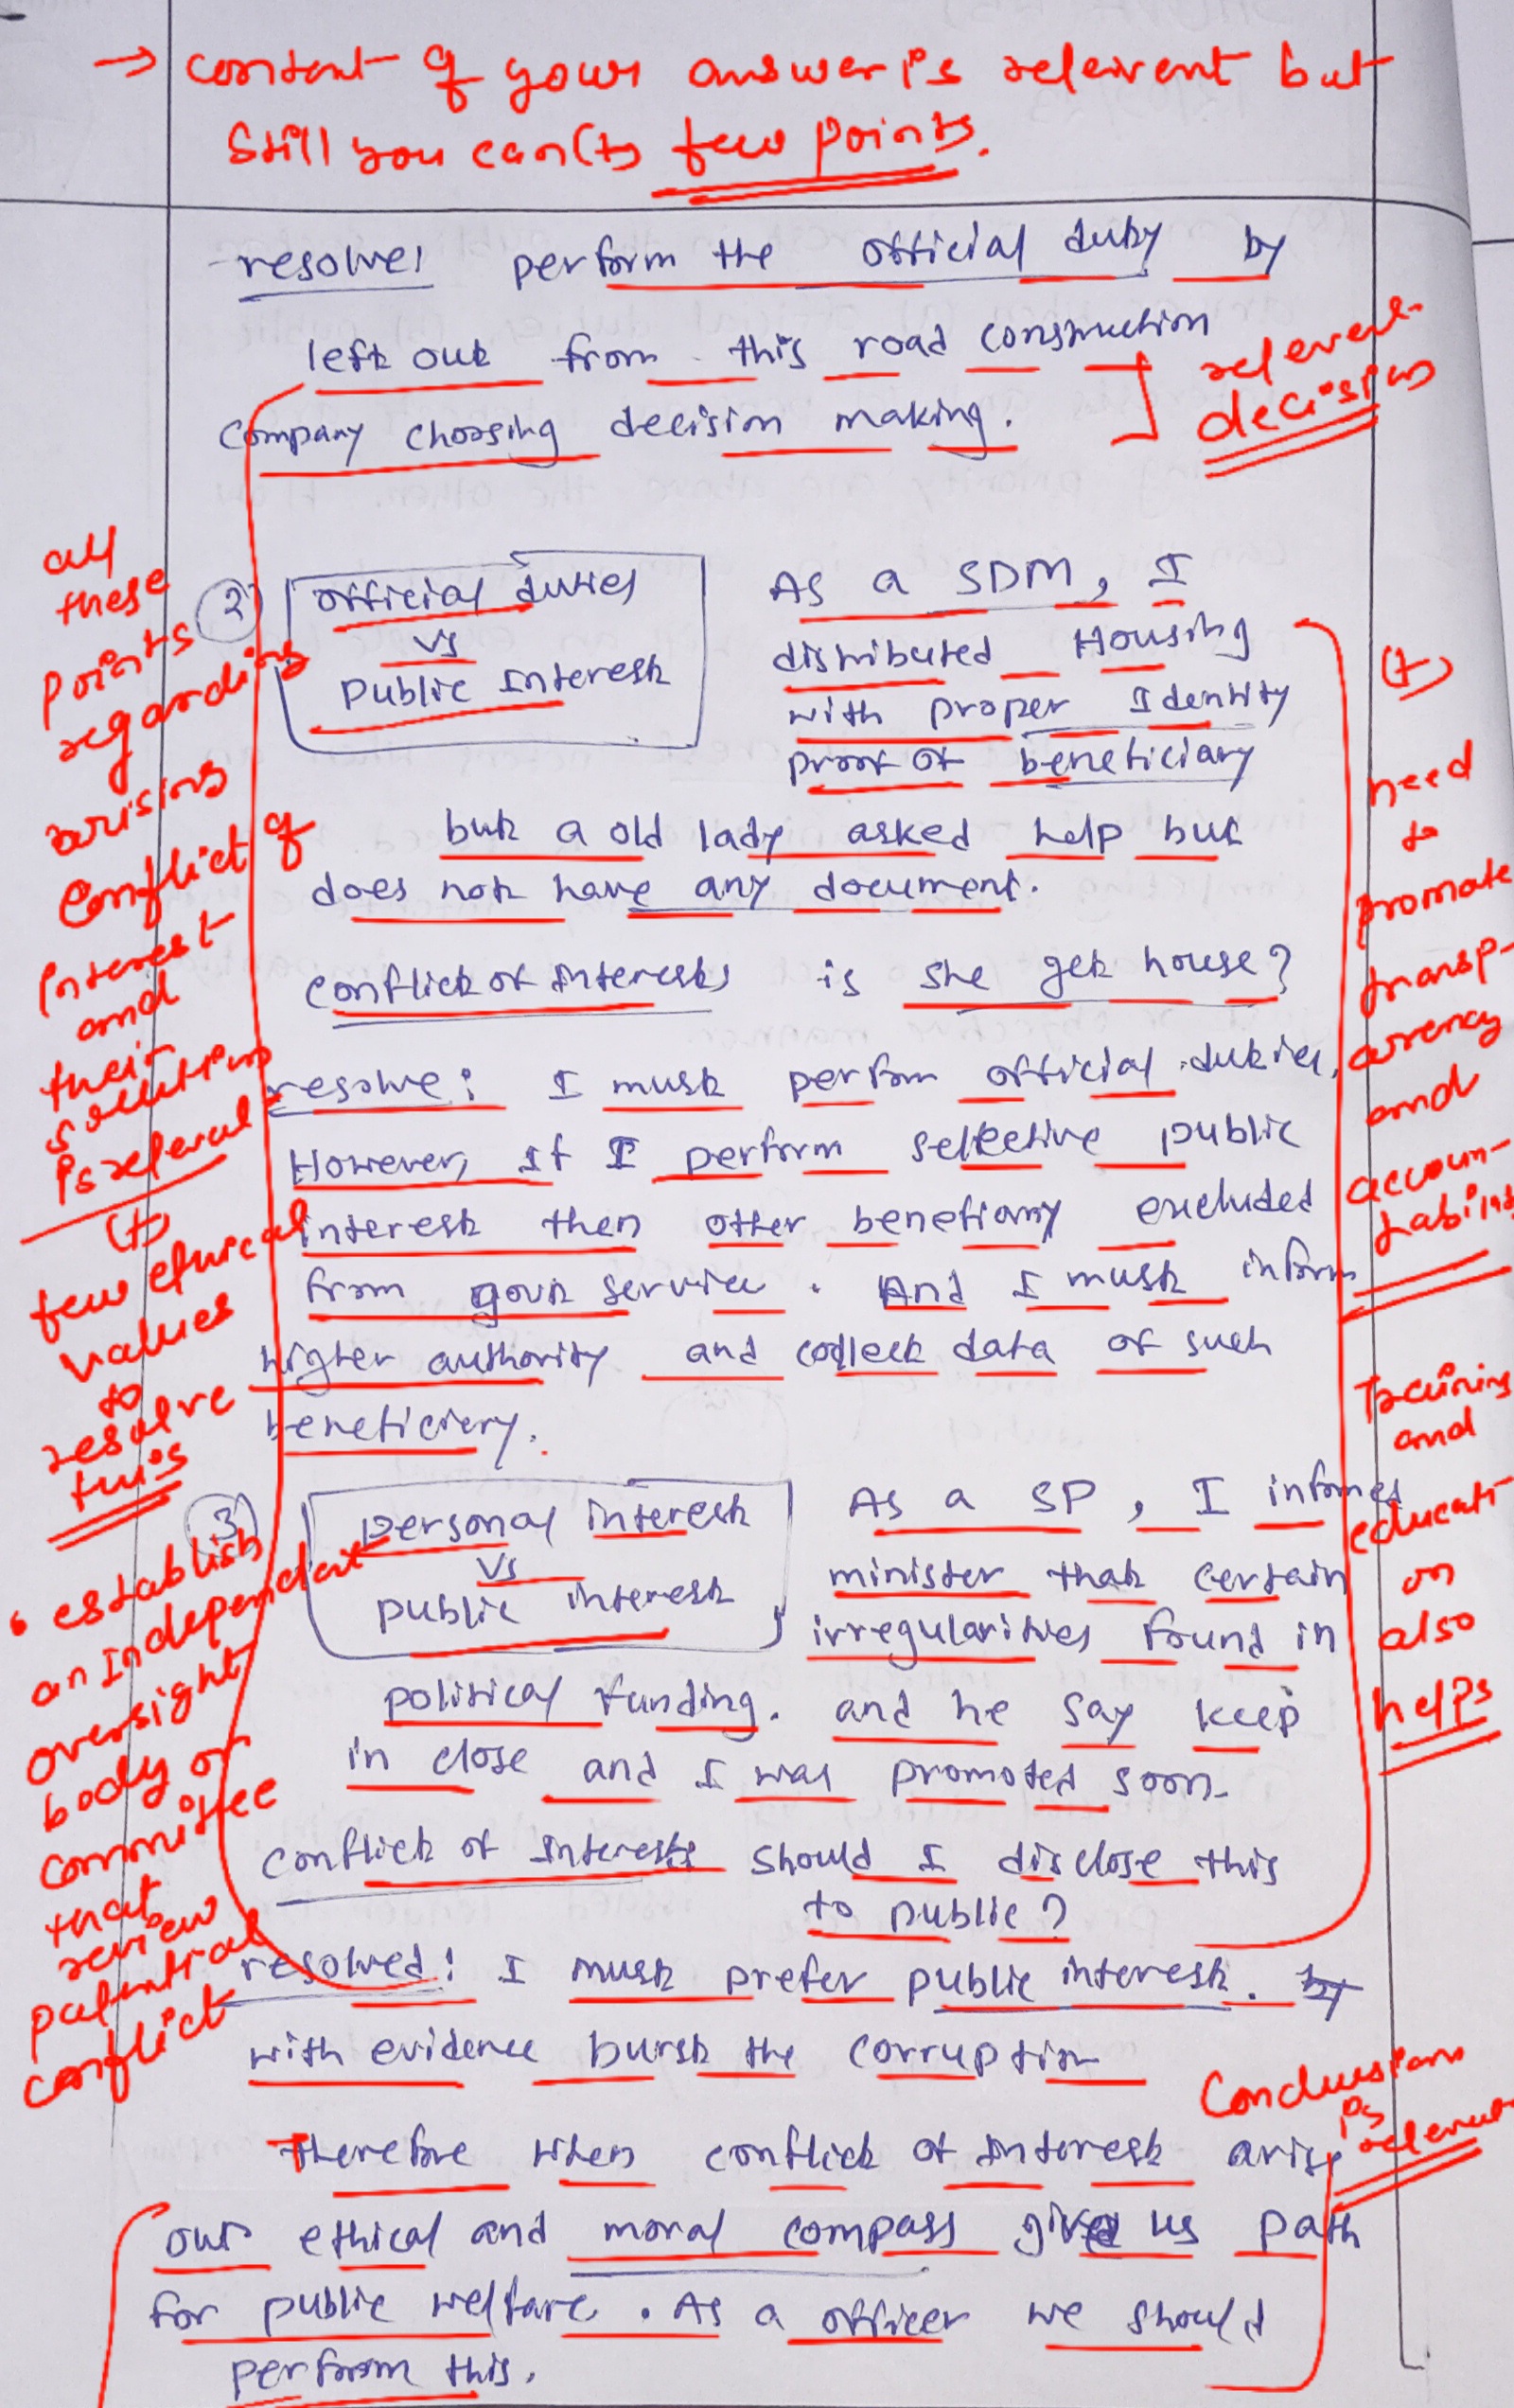 → content of your answer is relevent but
still you can (+) few points.
resolve: perform the official duty by
left out from this road construction
company choosing decision making.
relevent
decision
② official duties
vs
public interest
As a SDM, I
distributed Housing
with proper Identity
proof of beneficiary
but a old lady asked help but
does not have any document.
conflict of interests is she get house?
resolve: I must perform official duties.
However, if I perform selective public
interest then other beneficiary excluded
from govt service. And I must inform
higher authority and collect data of such
beneficiery.
③ personal interest
vs
public interest
As a SP, I informed
minister that certain
irregularities found in
political funding. and he say keep
in close and I was promoted soon.
conflict of interests should I disclose this
to public?
resolved: I must prefer public interest. by
with evidence burst the corruption
Therefore when conflict of interest arise
our ethical and moral compass gives us path
for public welfare. As a officer we should
perform this.
all
these
points
regarding
arising
conflict of
interest
and
their
solution
is relevent
(+)
few ethical
values
to
resolve
this
• establish
an independent
oversight
body or
committee
that
review
potential
conflict
(+)
need
to
promote
transp-
arency
and
accoun-
tability
Training
and
educati-
on
also
helps
Conclusion
is
relevent